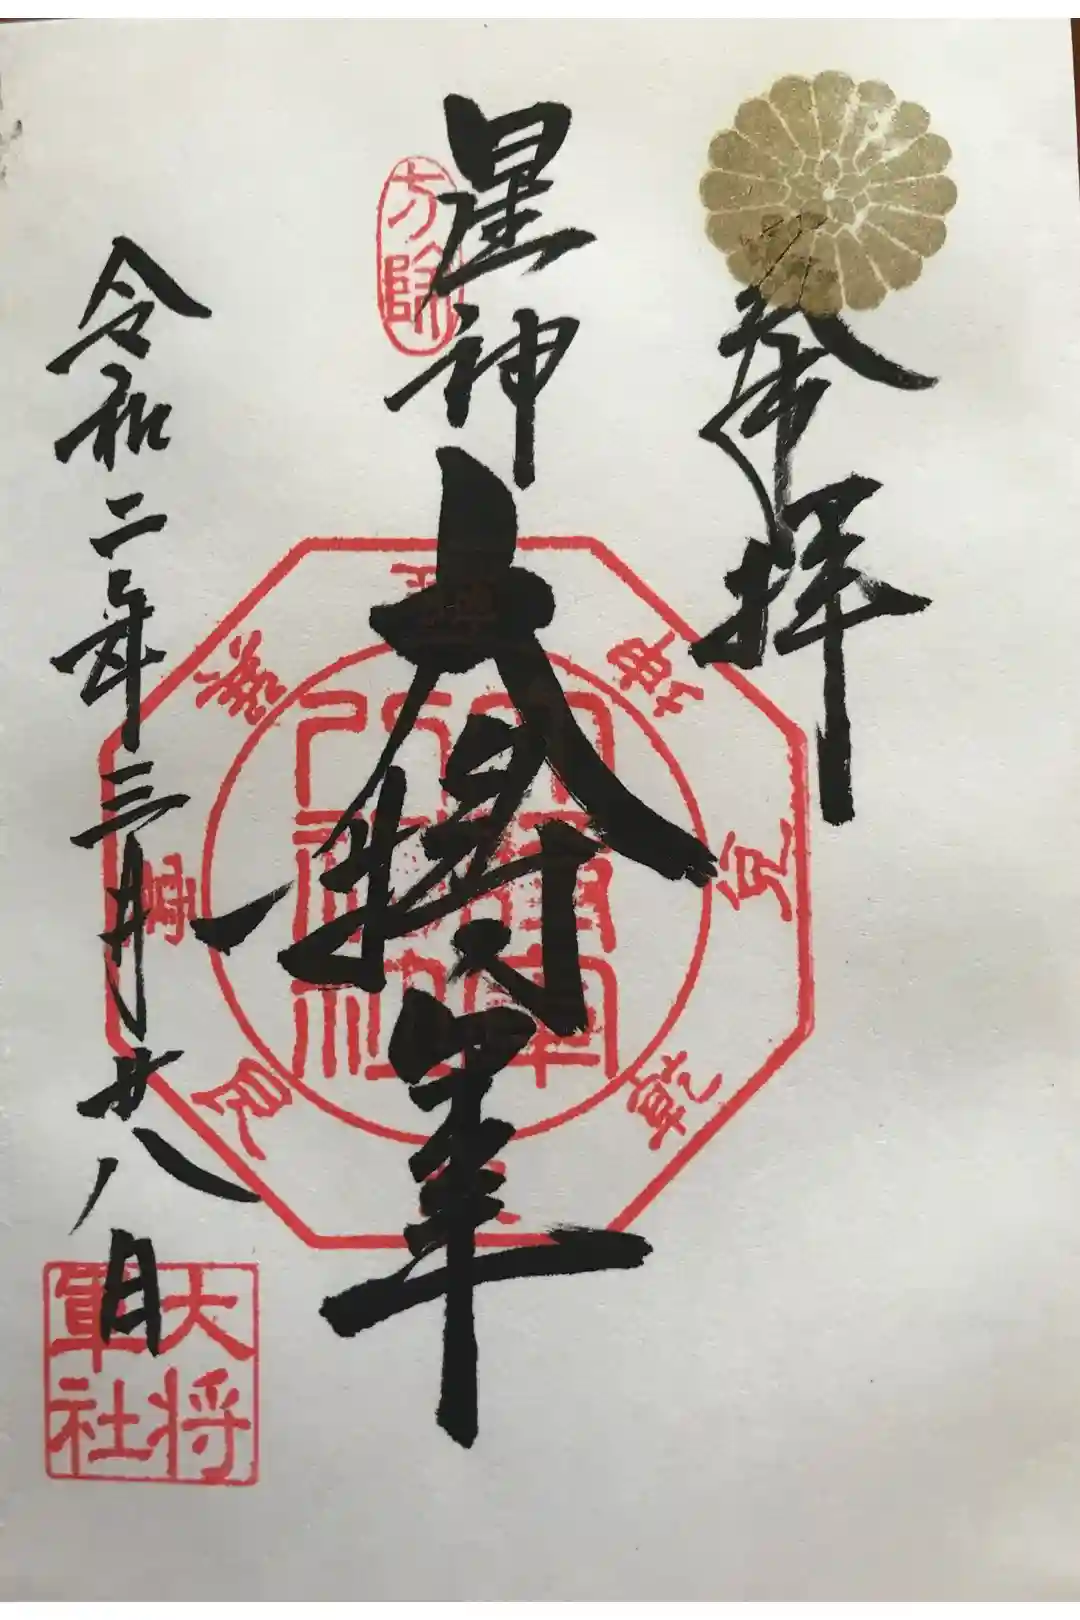 奉拝
星神
大将軍
方除
坤
兌
乾
艮
大将軍社
令和二年三月廿八日